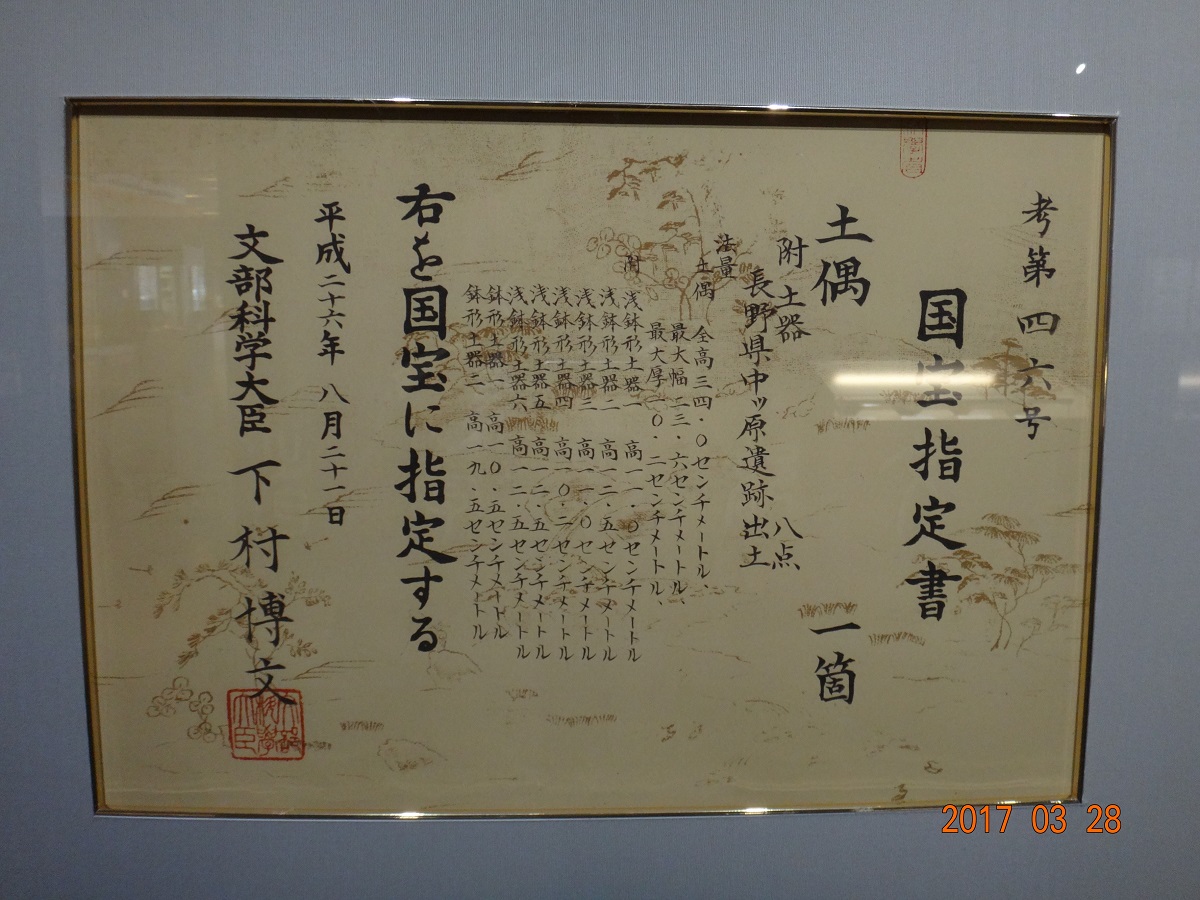 考第四六号
国宝指定書
土偶 一箇
附 土器 八点
長野県中ッ原遺跡出土
法量
土偶 全高三四・〇センチメートル、
最大幅二三・六センチメートル、
最大厚一〇・二センチメートル、
附 浅鉢形土器一 高一一・〇センチメートル
浅鉢形土器二 高一二・五センチメートル
浅鉢形土器三 高一一・〇センチメートル
浅鉢形土器四 高一〇・二センチメートル
浅鉢形土器五 高一二・五センチメートル
浅鉢形土器六 高一二・五センチメートル
鉢形土器一 高一〇・五センチメートル
鉢形土器二 高一九・五センチメートル
右を国宝に指定する
平成二十六年 八月二十一日
文部科学大臣 下村博文
2017 03 28